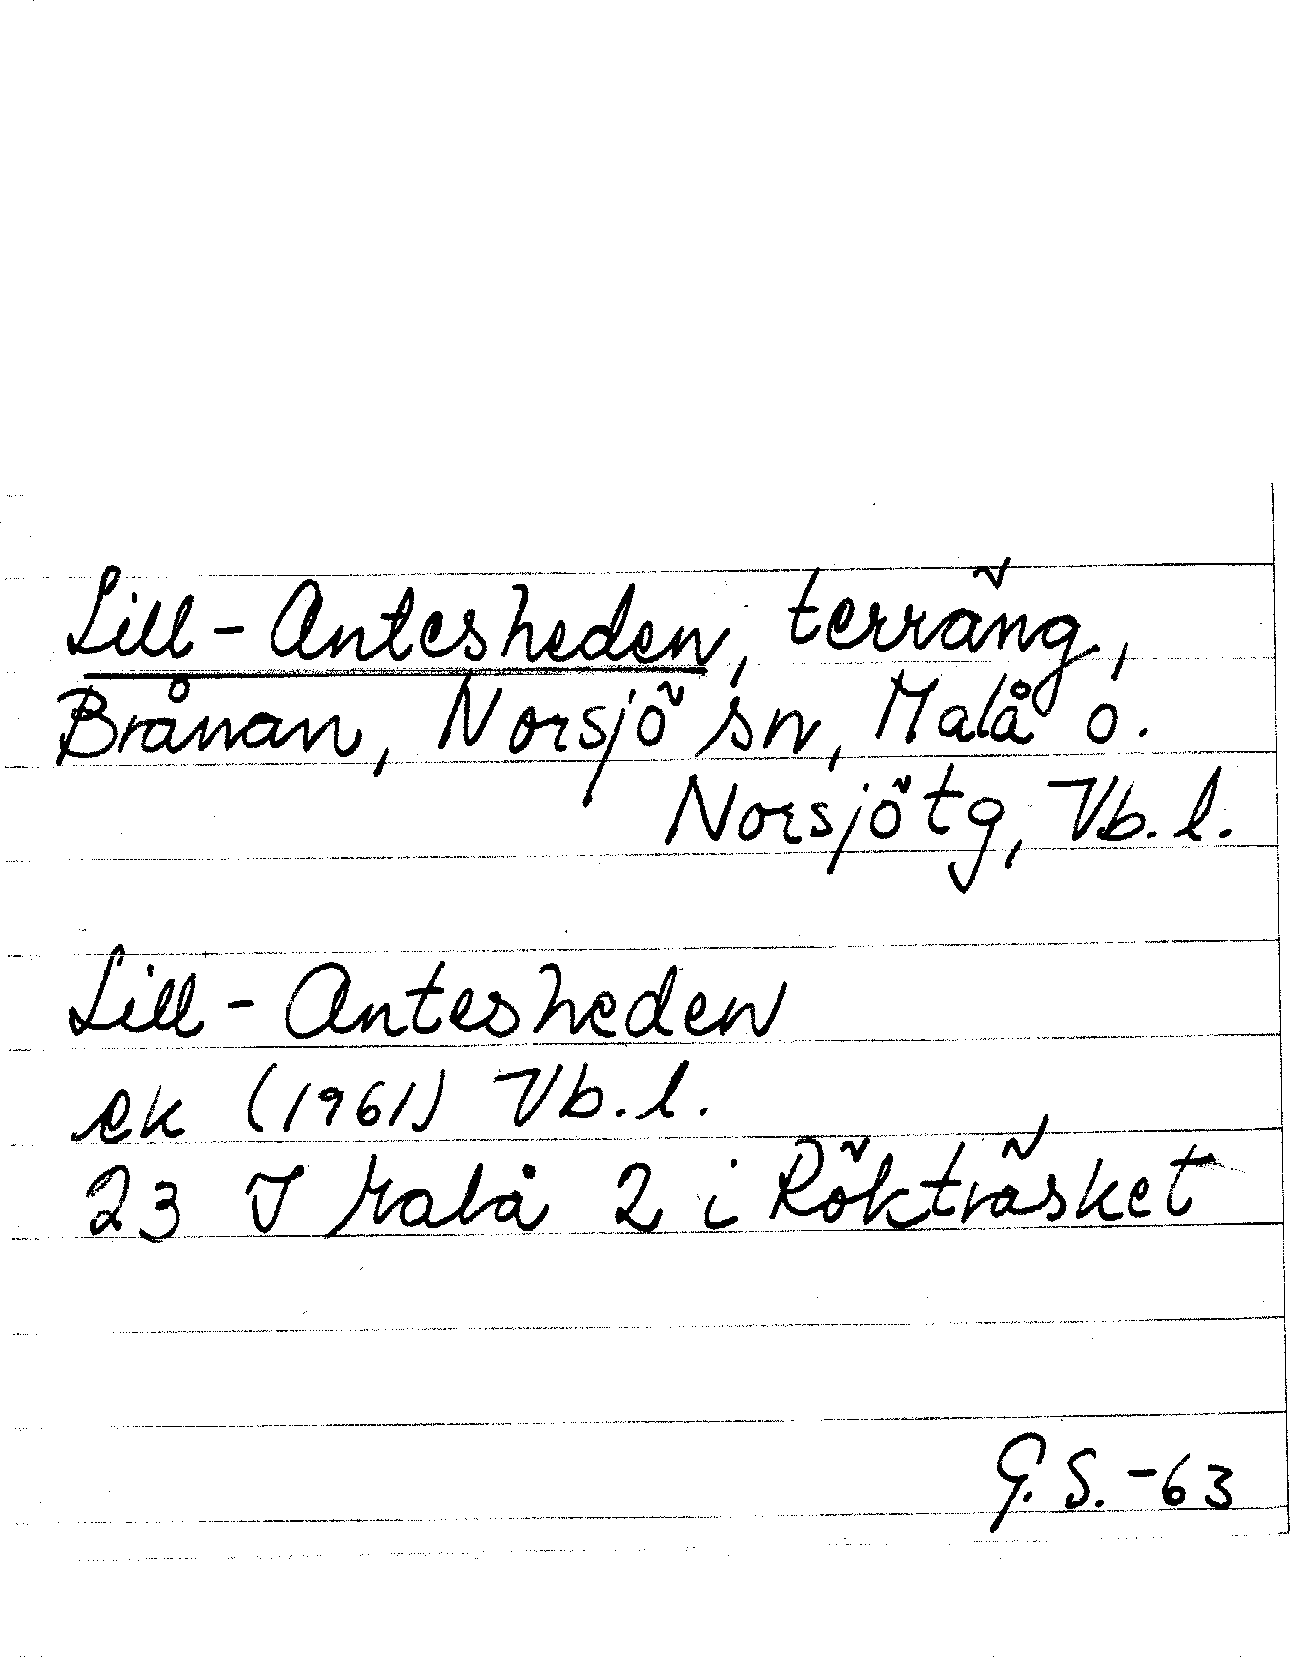 Lill-Antesheden, terräng,
Brånan, Norsjö sn, Malå o.
Norsjö tg, Vb. l.
Lill-Antesheden
ek (1961) Vb. l.
23 J Malå 2 i Rökträsket
G. S. -63